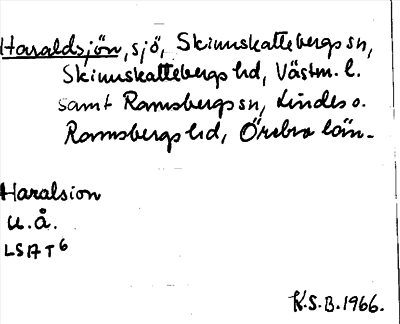 Haraldsjön, sjö, Skinnskattebergs sn,
Skinnskattebergs hd, Västm. l.
samt Ramsbergs sn, Lindes o.
Ramsbergs hd, Örebro län.
Haralsion
u.å.
LSA T6
K.S.B. 1966.